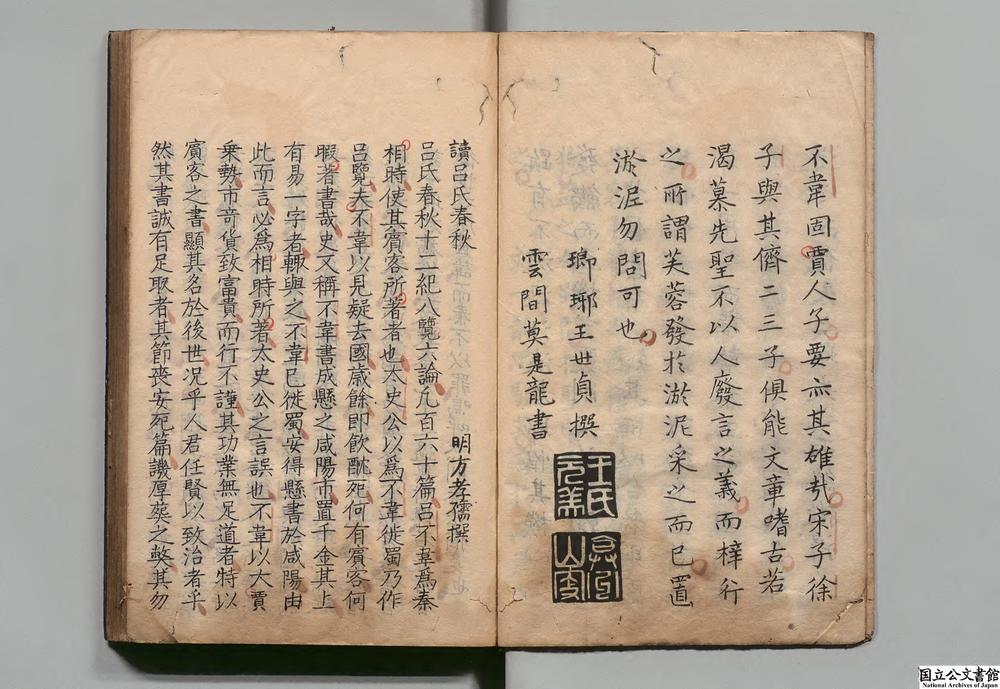 不韋固賈人子要亦其雄哉宋子徐
子與其儕二三子俱能文章嗜古若
渴慕先聖不以人廢言之義而梓行
之所謂芙蓉發於淤泥采之而已置
淤泥勿問可也
瑯琊王世貞撰
雲間莫是龍書
王氏元美
讀呂氏春秋
明方孝孺撰
呂氏春秋十二紀八覽六論凡百六十篇呂不韋爲秦
相時使其賓客所著者也太史公以爲不韋徙蜀乃作
呂覽夫不韋以見疑去國歲餘即飲酖死何有賓客何
暇著書哉史又稱不韋書成懸之咸陽市置千金其上
有易一字者輒與之不韋已徙蜀安得懸書於咸陽由
此而言必爲相時所著太史公之言誤也不韋以大賈
乗勢市奇貨致富貴而行不謹其功業無足道者特以
賓客之書顯其名於後世况乎人君任賢以致治者乎
然其書誠有足取者其節喪安死篇譏厚葬之弊其勿
国立公文書館
National Archives of Japan